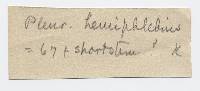 Pleur. hemiphlebius
= 67 + shortstem ! K